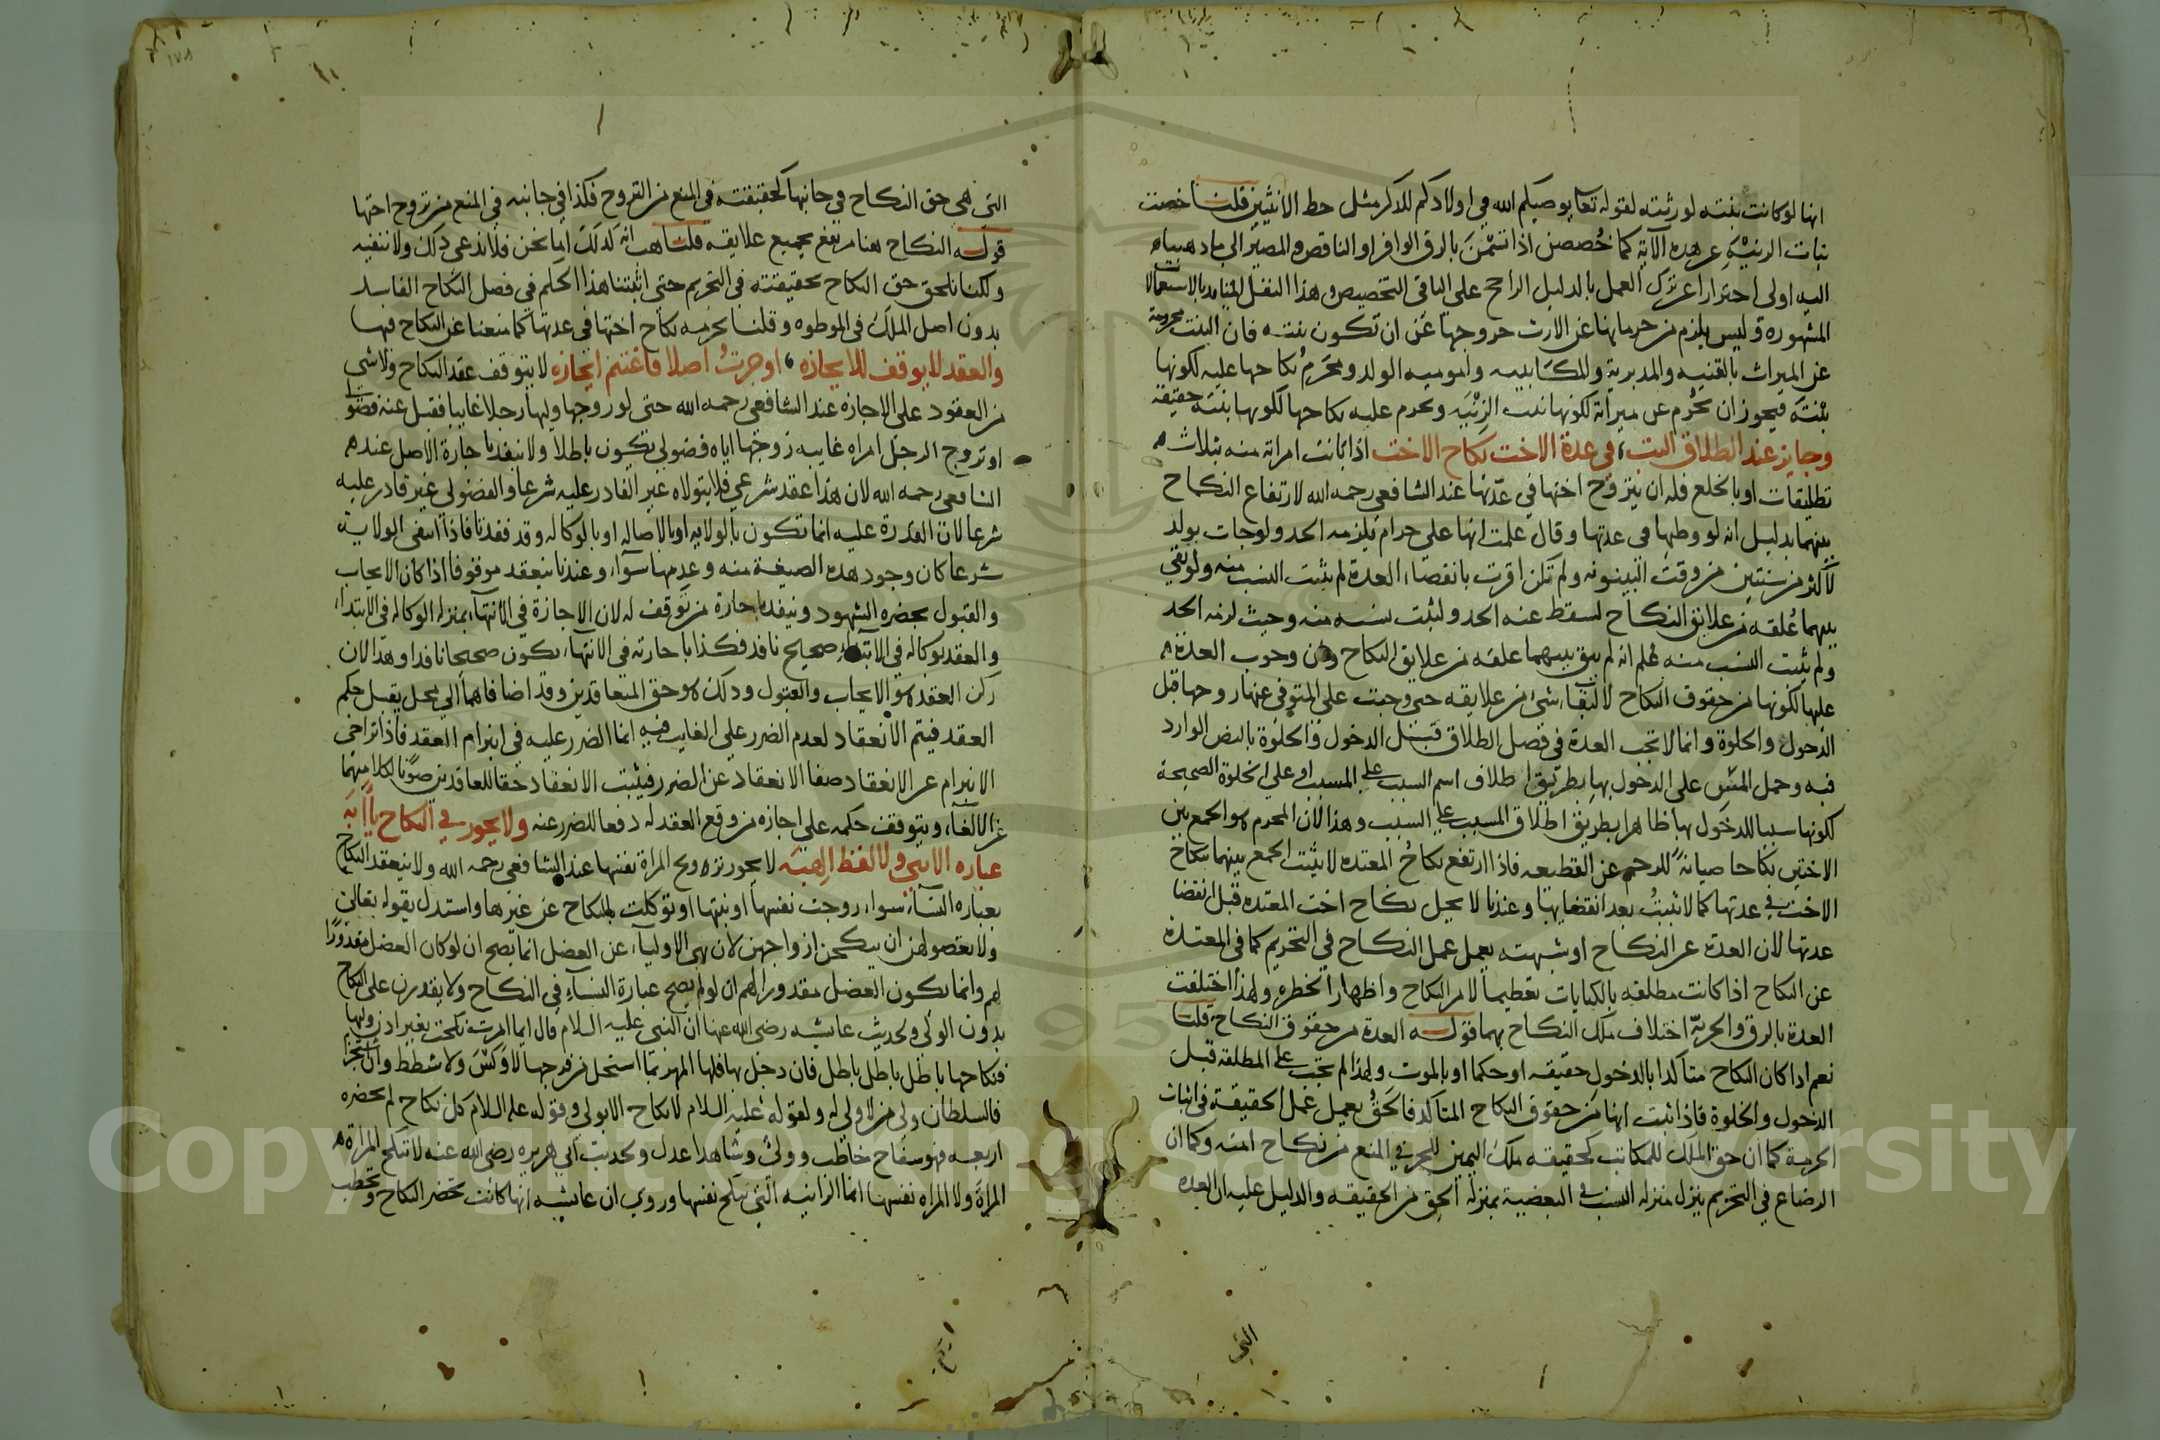 انها لو كانت بنته لورثته لقوله تعا يوصيكم الله في اولادكم للذكر مثل حظ الانثيين قلنا خصت
بنات الزنية عن هذه الاية كما خصصن اذا تسمن بالرق الوافر او الناقص والمصير الى ما ذهبنا
اليه اولى احترازا عن ترك العمل بالدليل الراجح على الباقي التخصيص وهذا النقل بالاستعمالا
المشهورة وليس يلزم من حرمانها عن الارث خروجها عن ان تكون بنته فان البنت محرومة
عن الميراث بالقنية والمدبرية والمكاتبية وامومية الولد ومحرم نكاحها عليه لكونها
بنته فيجوز ان تحرم عن ميراثه لكونها بنت الزنية ويحرم عليه نكاحها لكونها بنته حقيقة
وجايز عند الطلاق البت، في عدة الاخت نكاح الاخت اذا بانت امراته منه بثلاث
تطليقات او بالخلع فله ان يتزوج اختها في عدتها عند الشافعي رحمه الله لارتفاع النكاح
بينهما بدليل انه لو وطئها في عدتها وقال علمت انها على حرام يلزمه الحد ولو جات بولد
لاكثر من سنتين من وقت البينونه ولم تكن اقرت بانقضاء العدة لم يثبت النسب منه ولو بقي
بينهما علقه من علايق النكاح لسقط عنه الحد ولثبت نسبه منه وحيث لزمه الحد
ولم يثبت النسب منه علم انه لم يبق بينهما علقه من علايق النكاح وان وجوب العدة
عليها لكونها من حقوق النكاح لا لبقاء شئ من علايقه حتى وجبت على المتوفى عنها زوجها قبل
الدخول والخلوة وانما لا تجب العدة في فصل الطلاق قبل الدخول والخلوة بالنص الوارد
فيه وحمل المس على الدخول بها بطريق اطلاق اسم السبب على المسبب او على الخلوة الصحيحة
لكونها سببا للدخول بها ظاهرا بطريق اطلاق المسبب على السبب وهذا لان المحرم هو الجمع بين
الاختين نكاحا صيانة للرحم عن القطيعه فاذا ارتفع نكاح المعتده لا يثبت الجمع بينهما بنكاح
الاخت في عدتها كما لا يثبت بعد انقضايها وعندنا لا يحل نكاح اخت المعتده قبل انقضا
عدتها لان العدة عن النكاح او شبهته يعمل عمل النكاح في التحريم كما في المعتدة
عن النكاح اذا كانت مطلقه بالكنايات تعظيما لامر النكاح واظهارا لخطره ولهذا اختلفت
العدة بالرق والحرية اختلاف ملك النكاح بهما قوله العدة من حقوق النكاح قلنا
نعم اذا كان النكاح متاكدا بالدخول حقيقه او حكما او بالموت ولهذا لم تجب على المطلقه قبل
الدخول والخلوة فاذا ثبت انها من حقوق النكاح المتاكد فالحق يعمل عمل الحقيقة في اثبات
الحرمة كما ان حق الملك للمكاتب كحقيقه ملك اليمين للحر في المنع من نكاح امته وكما ان
الرضاع في التحريم ينزل منزله النسب في البعضية بمنزله الحق من الحقيقه والدليل عليه ان العده
التي
التي هي حق النكاح في جانبها كحقيقته في المنع من التزوج فكذا في جانبه في المنع من تزوج اختها
قوله النكاح هنا مرتفع بجميع علايقه قلنا هب انه كذلك اما نحن فلا ندعي ذلك ولا ننفيه
ولكنا نلحق حق النكاح بحقيقته في التحريم حتى اثبتنا هذا الحكم في فصل النكاح الفاسد
بدون اصل الملك في الموطوه وقلنا بحرمه نكاح اختها في عدتها كما منعنا عن النكاح فيها
والعقد لا يوقف للايجازه، او جرت اصلا فاغتنم ايجازه لا يتوقف عقد النكاح ولا شي
من العقود على الاجازه عند الشافعي رحمه الله حتى لو زوجها وليها رجلا غايبا فقبل عنه فضو
او تزوج الرجل امراه غايبه زوجها اياه فضولي يكون باطلا ولا ينفذ باجازة الاصل عنده
الشافعي رحمه الله لان هذا عقد شرعي فلا يتولاه غير القادر عليه شرعا والفضولي غير قادر عليه
شرعا لان القدرة عليه انما تكون بالولايه او بالاصاله او بالوكاله وقد فقدنا فاذا انتفى الولاية
شرعا كان وجود هذه الصيغة منه وعدمها سواء وعندنا ينعقد موقوفا اذا كان الايجاب
والقبول بحضره الشهود وينفذ باجازة من توقف له لان الاجازة في الانتهاء بمنزله الوكاله في الابتدا
والعقد بوكاله في الابتداء صحيح نافذ فكذا باجازته في الانتهاء يكون صحيحا نافذا وهذا لان
ركن العقد هو الايجاب والقبول وذلك هو حق المتعاقدين وقد اضافاهما الى محل يقبل حكم
العقد فيتم الانعقاد لعدم الضرر على الغايب فيه انما الضرر عليه في ابرام العقد فاذا تراخى
الانبرام عن الانعقاد صفا الانعقاد عن الضرر فيثبت الانعقاد حقا للعاقدين صونا لكلاميهما
عن الالغاء ويتوقف حكمه على اجازه من وقع العقد له دفعا للضرر عنه ولا يجوز في النكاح يا ابه
عباره الانثى ولا لفظ الهبه لا يجوز تزويج المراة نفسها عند الشافعي رحمه الله ولا ينعقد النكاح
بعباره النساء سواء زوجت نفسها او بنتها او توكلت بالنكاح عن غيرها واستدل بقوله تعالى
ولا تعضلوهن ان ينكحن ازواجهن لان نهي الاولياء عن العضل انما يصح ان لو كان العضل مقدورا
لهم وانما يكون العضل مقدورا لهم ان لو لم يصح عبارة النساء في النكاح ولا يقدرن على النكاح
بدون الولي ولحديث عايشه رضي الله عنها ان النبي عليه السلام قال ايما امرت نكحت بغير اذن وليها
فنكاحها باطل باطل باطل فان دخل بها فلها المهر بما استحل من فرجها لا وكس ولا شطط وان
فالسلطان ولي من لا ولي له ولقوله عليه السلام لا نكاح الا بولي وقوله عليه السلام كل نكاح لم يحضره
اربعه فهو سفاح خاطب وولي وشاهدا عدل ولحديث ابي هريره رضي الله عنه لا تنكح المراة
المراة ولا المراه نفسها انما الزانيه التي تنكح نفسها وروي ان عايشه انها كانت تحضر النكاح وتخطب
Copyright © King Saud University